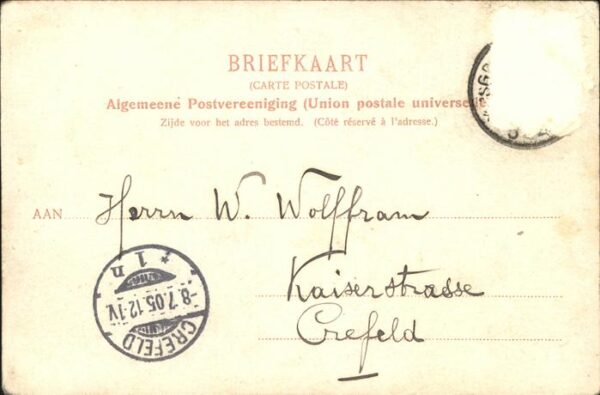 BRIEFKAART
(CARTE POSTALE)
Algemeene Postvereeniging (Union postale universelle
Zijde voor het adres bestemd. (Côté réservé à l'adresse.)
AAN Herrn W. Wolffram
Kaiserstrasse
Crefeld
* 1 n
-8.7.05.12-1V.
CREFELD